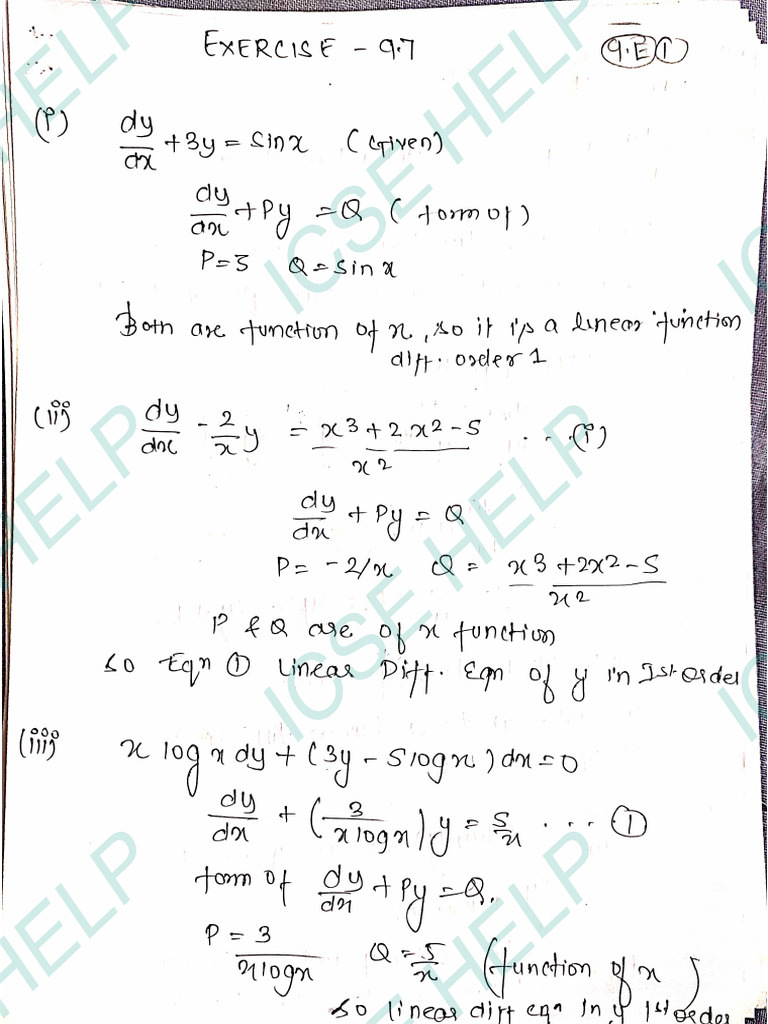 EXERCISE - 9.7
9.E 1
(i) dy/dx + 3y = sinx (Given)
dy/dx + Py = Q (form of)
P=3 Q=sinx
Both are function of x, so it is a linear function
diff. order 1
(ii) dy/dx - 2/x y = x3+2x2-5/x2 ... (i)
dy/dx + Py = Q
P= -2/x Q= x3+2x2-5/x2
P & Q are of x function
so Eqn ① Linear Diff. Eqn of y in 1st order
(iii) x logx dy + (3y - 5logx) dx=0
dy/dx + (3/xlogx) y = 5/x ... ①
form of dy/dx + Py = Q.
P = 3/xlogx Q = 5/x (function of x)
so linear diff eqn in y 1st order
ICSE HELP
ICSE HELP